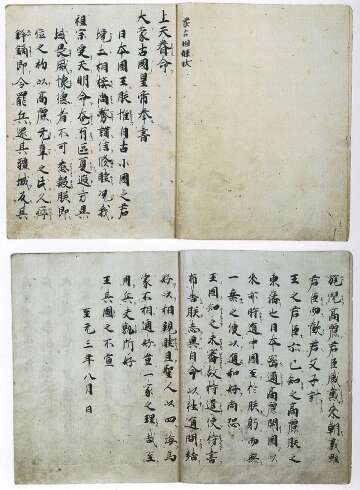 蒙古國牒状
上天眷命
大蒙古國皇帝奉書
日本國王朕惟自古小國之君
境土相接尚務講信修睦況我
祖宗受天明命奄有區夏遐方異
域畏威懷德者不可悉數朕即
位之初以高麗无辜之民久瘁
鋒鏑即令罷兵還其疆域反其
旄倪高麗君臣感戴來朝義雖
君臣而歡若父子計
王之君臣亦已知之高麗朕之
東藩也日本密邇高麗開國以
來亦時通中國至於朕躬而無
一乘之使以通和好尚恐
王國知之未審故特遣使持書
布告朕志冀自今以往通問結
好以相親睦且聖人以四海爲
家不相通好豈一家之理哉至
用兵夫孰所好
王其圖之不宣
至元三年八月 日